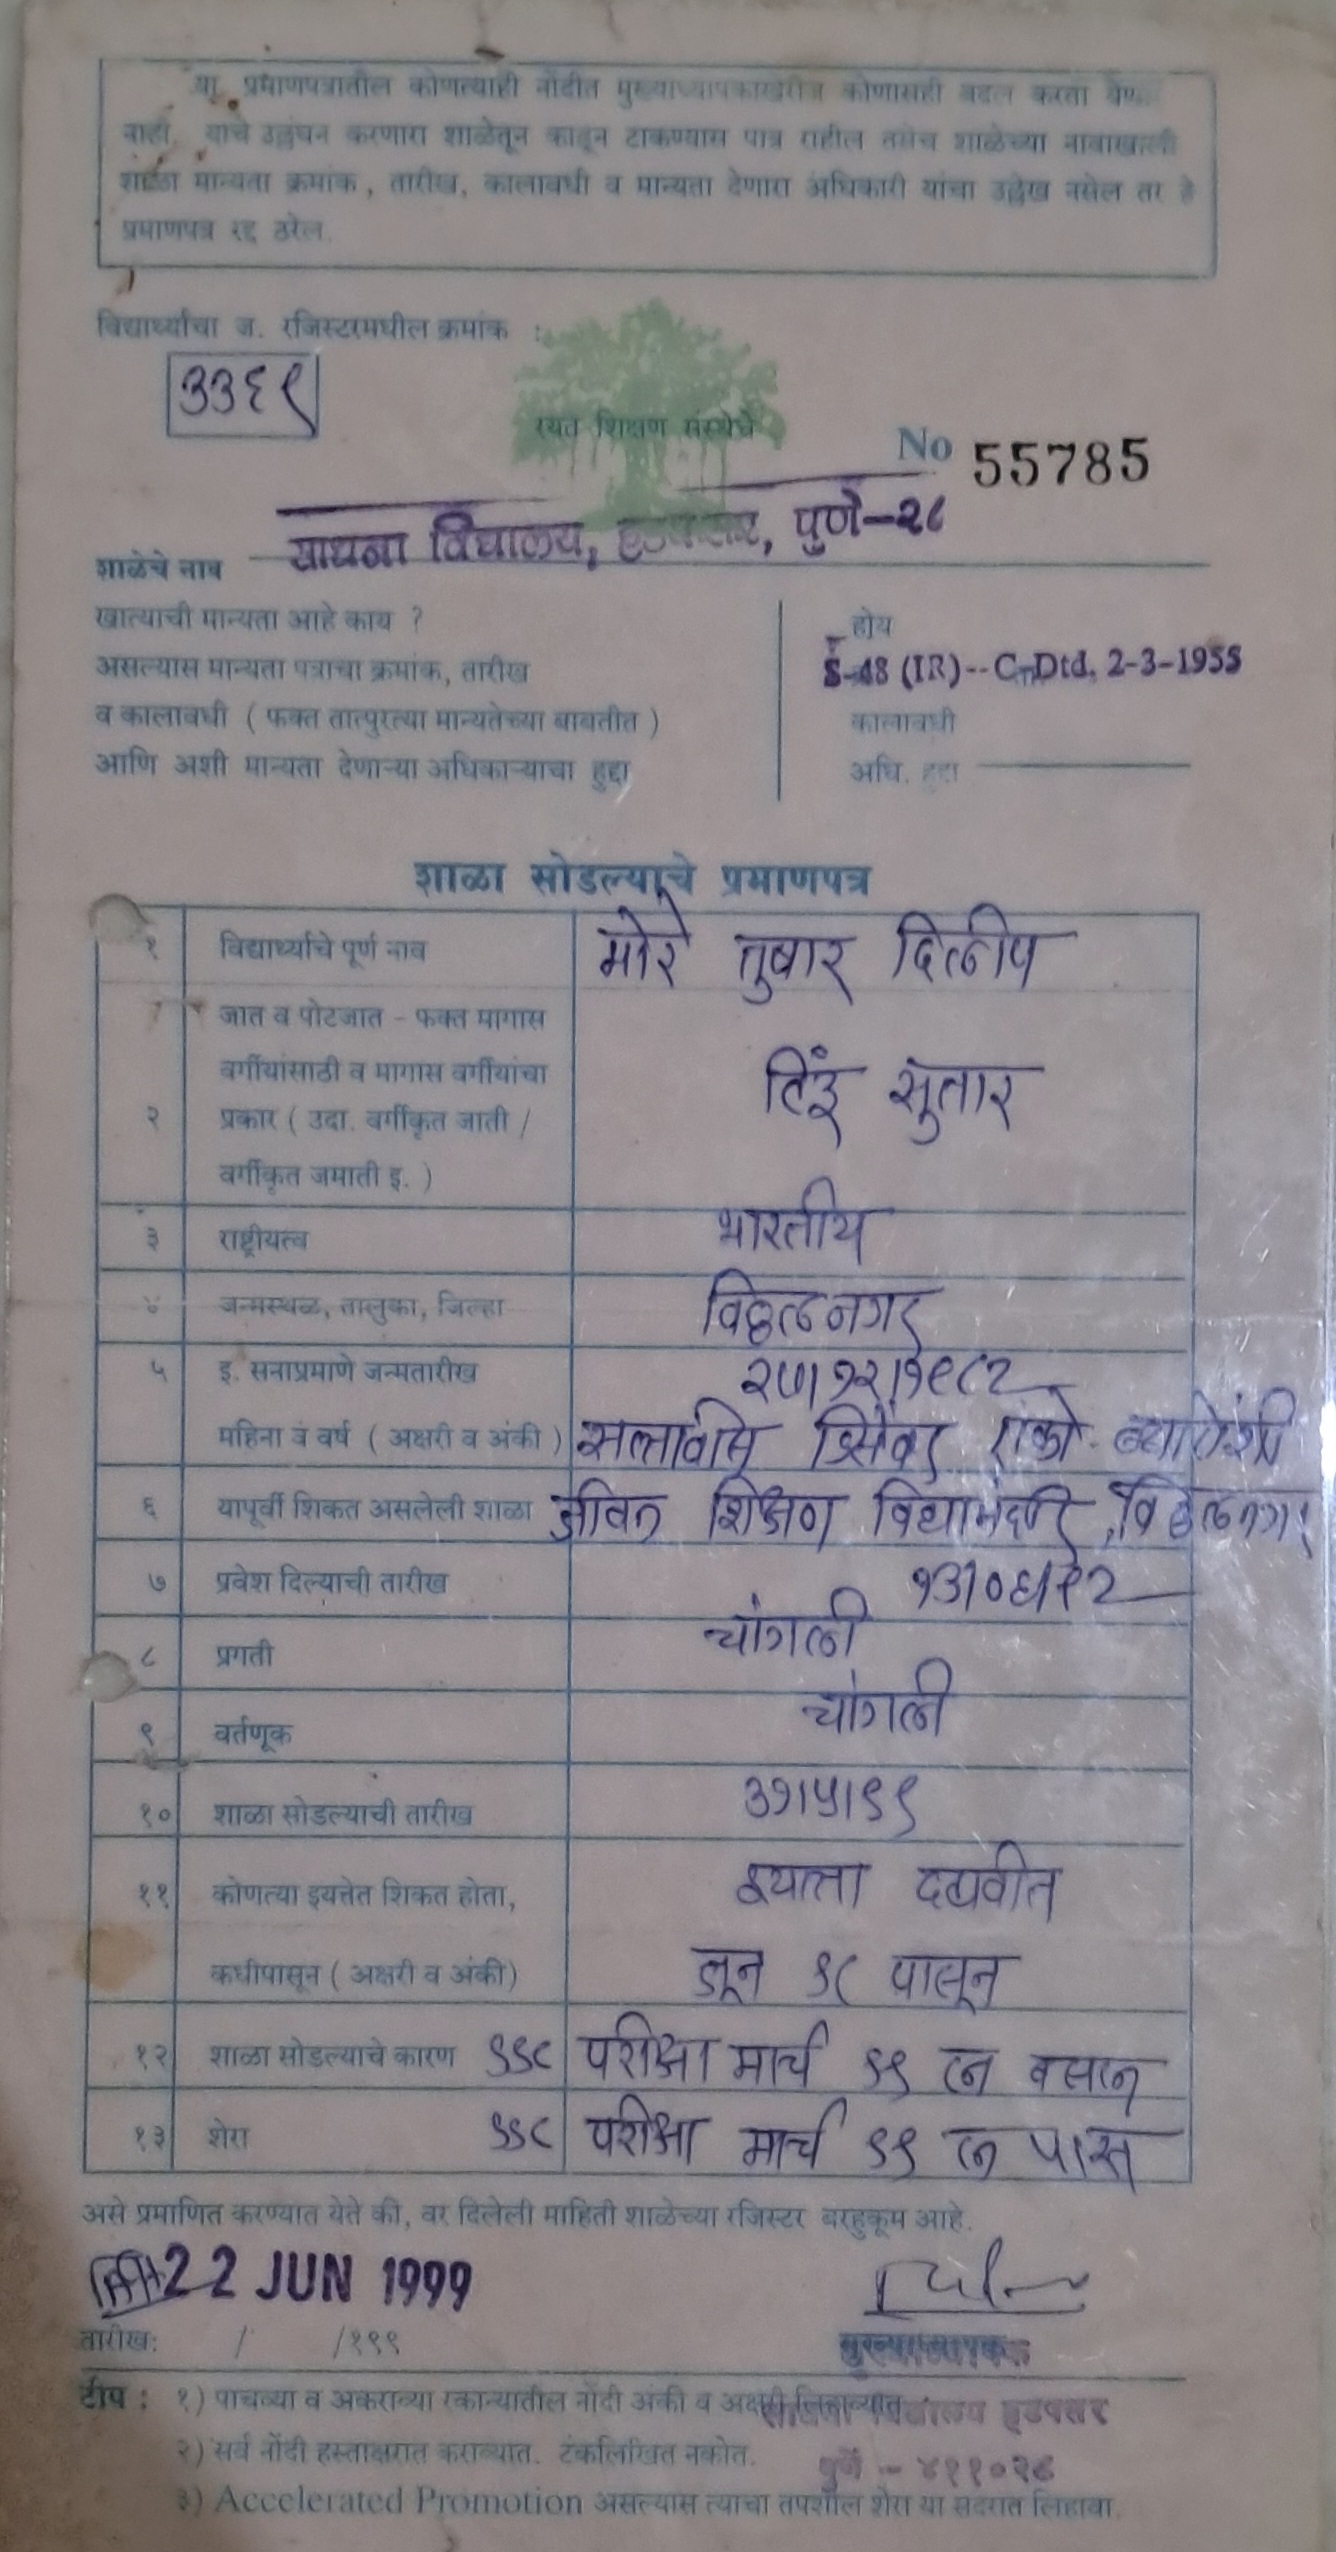 या प्रमाणपत्रातील कोणत्याही नोंदीत मुख्याध्यापकाखेरीज कोणासही बदल करता येणार
नाही. याचे उल्लंघन करणारा शाळेतून काढून टाकण्यास पात्र राहील तसेच शाळेच्या नावाखाली
शाळा मान्यता क्रमांक, तारीख, कालावधी व मान्यता देणारा अधिकारी यांचा उल्लेख नसेल तर हे
प्रमाणपत्र रद्द ठरेल.
विद्यार्थ्याचा ज. रजिस्टरमधील क्रमांक :
३३६९
रयत शिक्षण संस्थेचे
No 55785
साधना विद्यालय, हडपसर, पुणे-२८
शाळेचे नाव
खात्याची मान्यता आहे काय ? होय
असल्यास मान्यता पत्राचा क्रमांक, तारीख S-48 (IR)--C-Dtd. 2-3-1955
व कालावधी ( फक्त तात्पुरत्या मान्यतेच्या बाबतीत ) कालावधी
आणि अशी मान्यता देणाऱ्या अधिकाऱ्याचा हुद्दा अधि. हुद्दा
शाळा सोडल्याचे प्रमाणपत्र
१ विद्यार्थ्याचे पूर्ण नाव मोरे तुषार दिलीप
जात व पोटजात - फक्त मागास
वर्गीयांसाठी व मागास वर्गीयांचा हिंदू सुतार
२ प्रकार ( उदा. वर्गीकृत जाती /
वर्गीकृत जमाती इ. )
३ राष्ट्रीयत्व भारतीय
४ जन्मस्थळ, तालुका, जिल्हा विठ्ठलनगर
५ इ. सनाप्रमाणे जन्मतारीख २७।१२।१९८२
महिना व वर्ष ( अक्षरी व अंकी ) सत्तावीस डिसेंबर एको. ब्याऐंशी
६ यापूर्वी शिकत असलेली शाळा जीवन शिक्षण विद्यामंदीर, विठ्ठलनगर
७ प्रवेश दिल्याची तारीख १३।०६।९२
८ प्रगती चांगली
९ वर्तणूक चांगली
१० शाळा सोडल्याची तारीख ३१।५।९९
११ कोणत्या इयत्तेत शिकत होता, इयत्ता दहावीत
कधीपासून ( अक्षरी व अंकी) जून ९८ पासून
१२ शाळा सोडल्याचे कारण SSC परीक्षा मार्च ९९ ला बसला
१३ शेरा SSC परीक्षा मार्च ९९ ला पास
असे प्रमाणित करण्यात येते की, वर दिलेली माहिती शाळेच्या रजिस्टर बरहुकूम आहे.
22 JUN 1999
तारीख: / /१९९
मुख्याध्यापक
टीप : १) पाचव्या व अकराव्या रकान्यातील नोंदी अंकी व अक्षरी लिहाव्यात.
साधना विद्यालय हडपसर
२) सर्व नोंदी हस्ताक्षरात कराव्यात. टंकलिखित नकोत.
पुणे - ४११०२८
३) Accelerated Promotion असल्यास त्याचा तपशील शेरा या सदरात लिहावा.